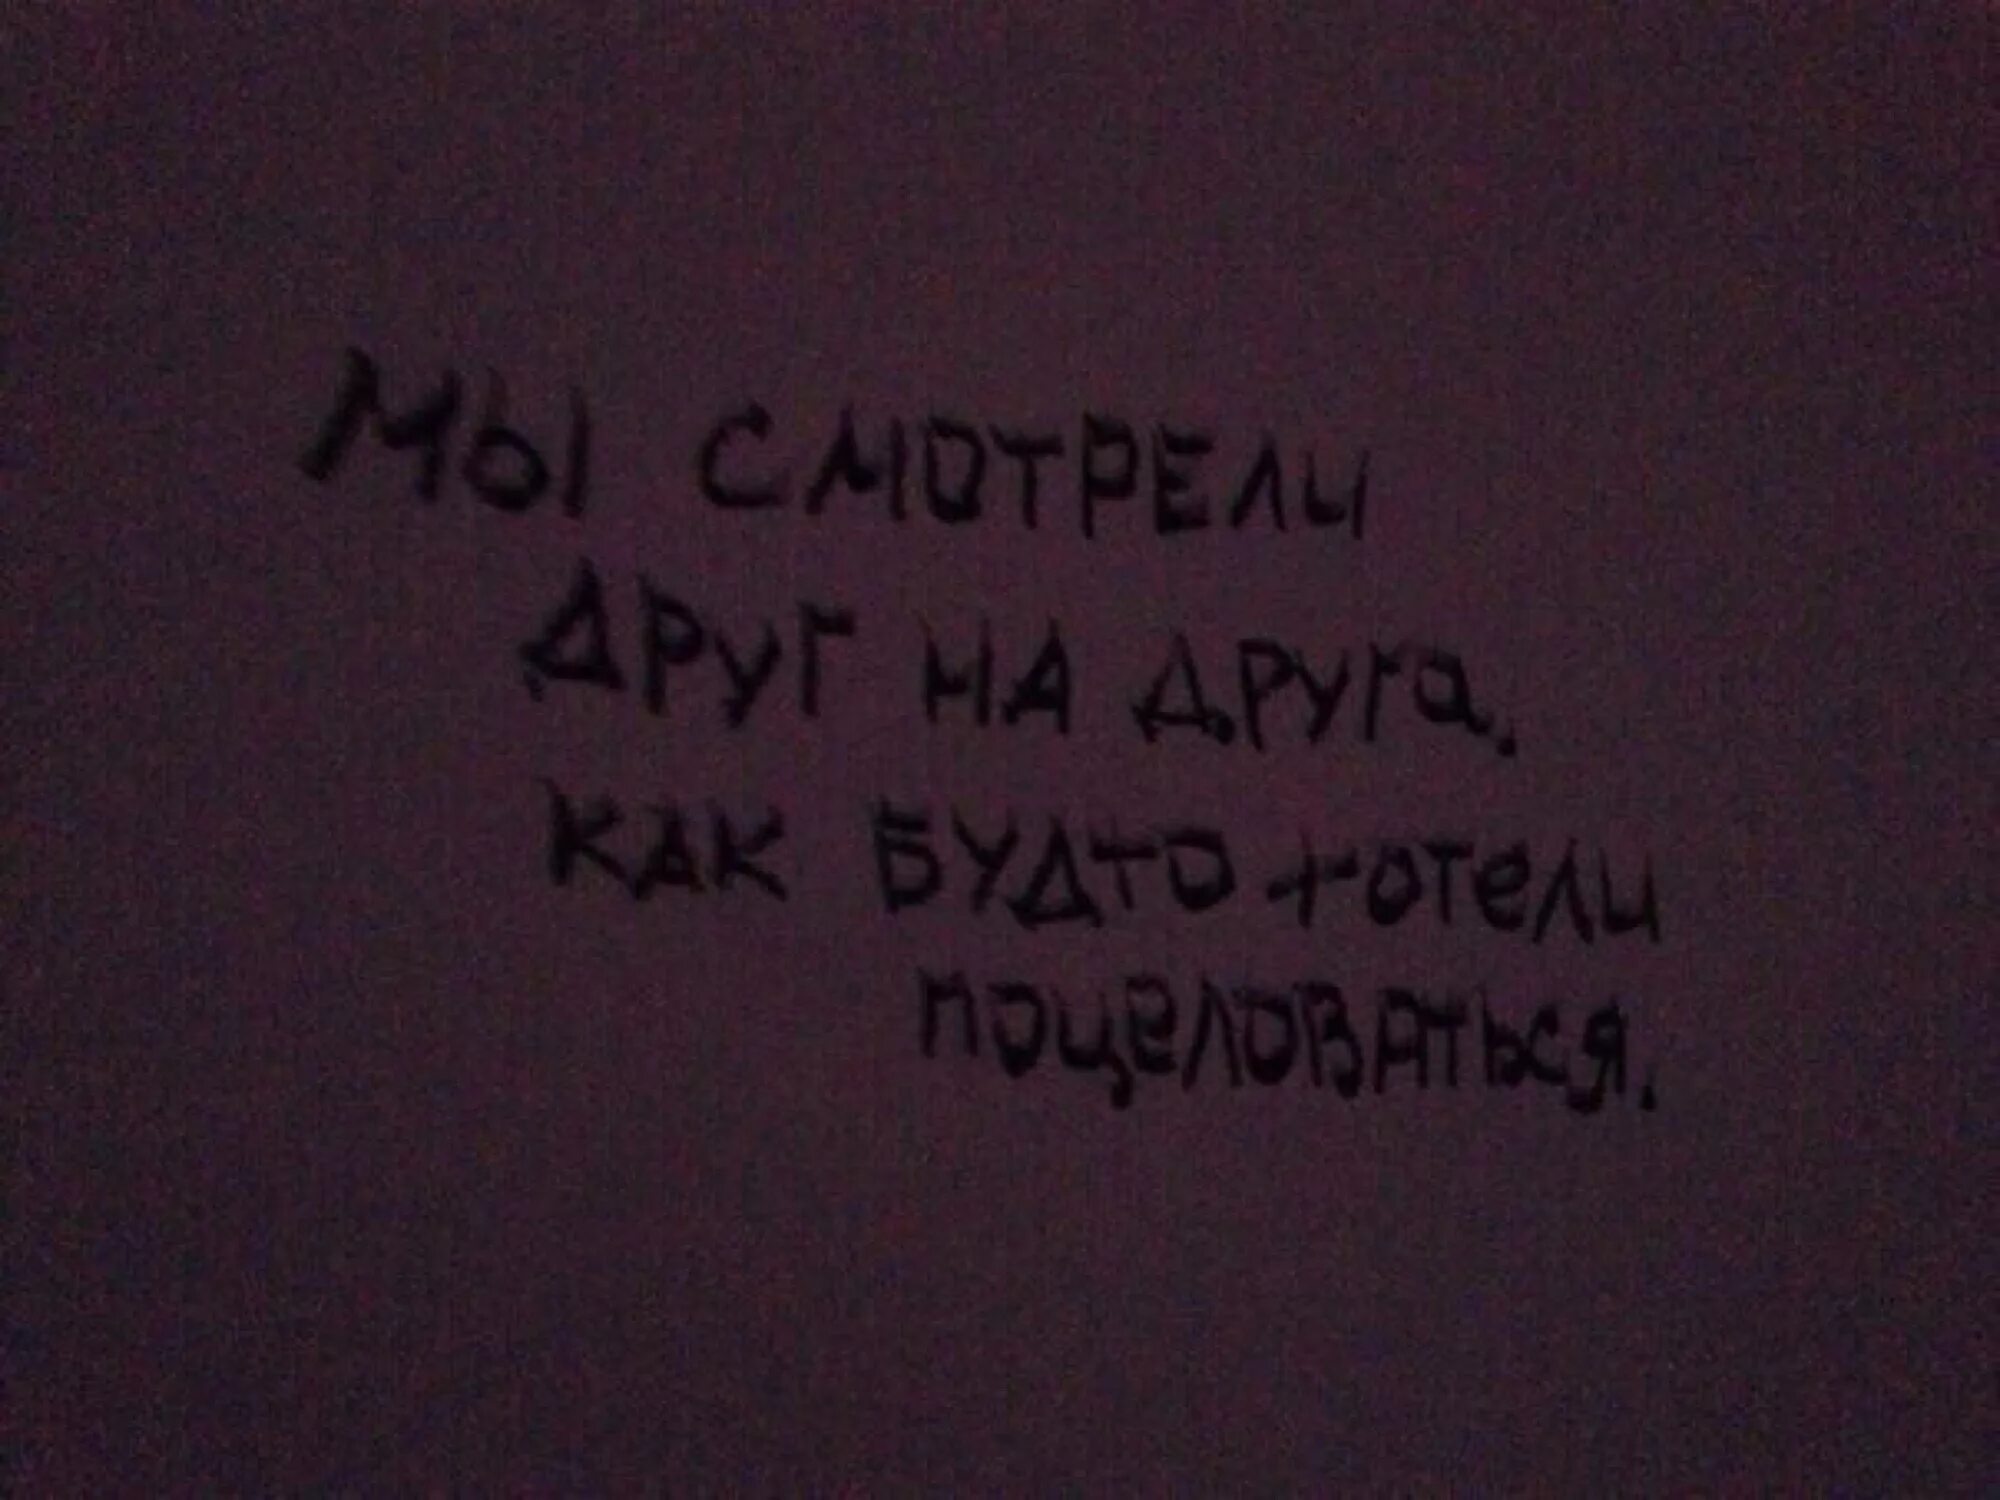 Мы СМОТРЕЛИ
ДРУГ НА ДРУГа,
КАК БУДТО хОТЕЛИ
ПОЦЕЛОВАТЬСЯ.